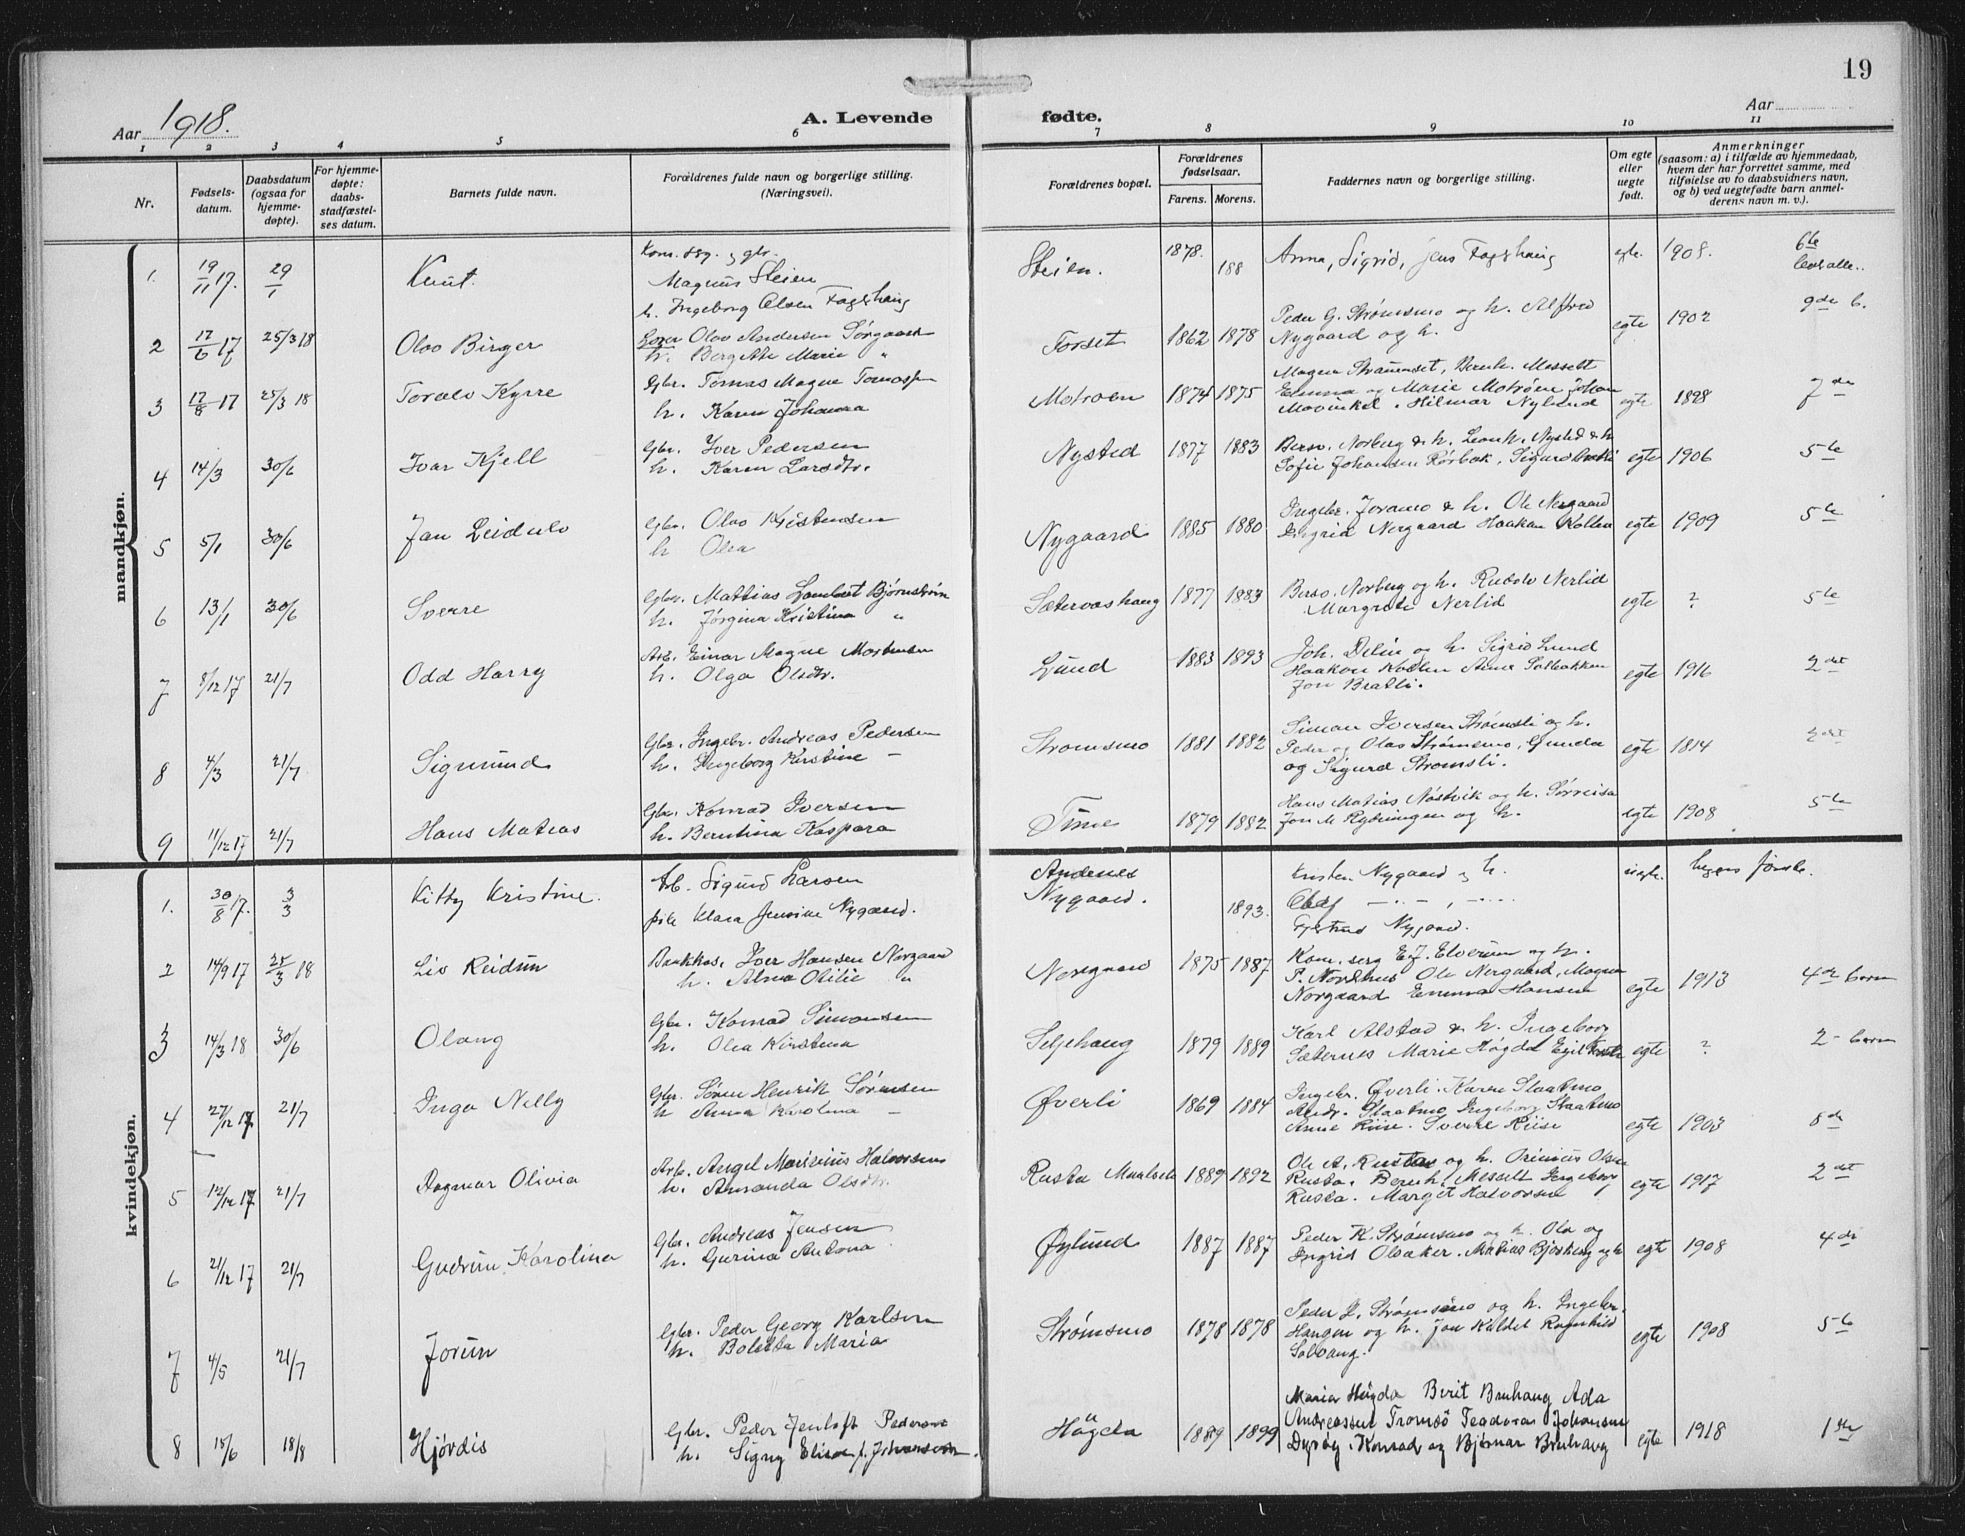 19
Aar 1918.
A. Levende fødte.
Aar
1 2 3 4 5 6 7 8 9 10 11
Nr.
Fødsels-
datum.
Daabsdatum
(ogsaa for
hjemme-
døpte).
For hjemme-
døpte:
daabs-
stadfæstel-
ses datum.
Barnets fulde navn.
Forældrenes fulde navn og borgerlige stilling.
(Næringsvei).
Forældrenes bopæl.
Forældrenes
fødselsaar.
Farens. Morens.
Faddernes navn og borgerlige stilling.
Om egte
eller
uegte
født.
Anmerkninger
(saasom: a) i tilfælde av hjemmedaab,
hvem der har forrettet samme, med
tilføielse av to daabsvidners navn,
og b) ved uegtefødte barn anmel-
derens navn m. v.).
mandkjøn.
1. 19/11 17. 29/1 Knut.
Magnus Steien
h. Ingeborg Olsen Fagshaug
Steien. 1878. 188
Anna, Sigrid, Jens Fagshaug
egte. 1908. 6te
2 12/6 17 25/3 18 Olav Birger
Olav Andersen Sørgaard
h. Bergitte Marie "
Forset 1862 1878
Peder G. Strømsmo og h. Alfred
Nygaard og h.
egte 1902 9de b.
3 12/8 17 25/3 18 Toralv Kyrre
Gbr. Tomas Magne Tomassen
h. Karen Johanna
Motroen 1874 1875
Magna Straumset, Bernh. Messelt
Emma og Marie Motrøen Johan
Movinkel. Hilmar Nylund
egte 1898 7de
4 14/3 30/6 Ivar Kjell
Gbr. Iver Pedersen
h. Karen Larsdtr.
Nysted 1877 1883
Bersv. Norberg & h. Leonh. Nysted & h
Sofie Johansen Rørbak, Sigurd Bratli
egte 1906 5te
5 5/1 30/6 Jan Leidulv
Gbr. Olav Kristensen
h Olea
Nygaard 1885 1880
Ingebr. Joramo & h. Ole Nergaard
Ingrid Nergaard Haakon Kollen
egte 1909 5te
6 13/1 30/6 Sverre
Gbr. Mattias Lambert Bjørnstrøm
h. Jørgina Kristina "
Sætervashaug 1877 1883
Bersv. Norberg og h. Rudolv Nerlid
Margrete Nerlid
egte ? 5te
7 8/12 17 21/7 Odd Harry
Arb. Einar Magne Mortensen
h. Olga Olsdtr.
Lund 1883 1893
Joh. Delin og h. Sigrid Lund
Haakon Kollen Anna Solbakken
Jon Bratli.
egte 1916 2det
8 4/3 21/7 Sigmund
Gbr. Ingebr. Andreas Pedersen
h. Ingeborg Kristine -
Strømsmo 1881 1882
Simon Iversen Strømsli og h.
Peder og Olav Strømsmo, Gunda
og Sigurd Strømsli.
egte 1814 2det
9 11/12 17 21/7 Hans Matias
Gbr. Konrad Iversen
h. Berntina Kaspara
1879 1882
Hans Matias Nøstvik og h. Sørreisa
Jon M og h.
egte 1908 5te
kvindekjøn.
1. 30/8 17. 3/3 Kitty Kristine.
Arb. Sigurd Larsen
pike Klara Jensine Nygaard.
Andenes
Nygaard. 1893.
Kristen Nygaard og h.
Olaf
Gjertrud Nygaard.
uegte.
2 14/9 17 25/3 18 Liv Reidun
Bankkas. Iver Hansen Norgaard
h. Alma Otilie "
Norgaard 1875 1887
Kom. serg E.J. Elverum og h.
P. Nordhus Ole Nergaard, Magna
Norgaard Emma Hansen
egte 1913 4de barn
3 14/3 18 30/6 Olaug
Gbr. Konrad Simonsen
h. Olea Kirstina
Seljehaug 1879 1889
Karl Alstad & h. Ingeborg
Sæternes Marie Høgda Egil
egte ? 2- barn
4 27/12 17 21/7 Inga Nelly
Gbr. Søren Henrik Sørensen
h Anna Karolina -
Øverli 1869 1884
Ingebr. Øverli. Karen Slaatmo
Andr. Slaatmo Ingeborg Slaatmo
Anne Riise. Sverre Riise
egte 1903 8de
5 12/12 17 21/7 Dagmar Olivia
Arb. Angel Marinius Halvorsen
h. Amanda Olsdtr.
Rusta Maalselv 1889 1892
Ole A. Rustas og h. Olsen
Rusta. Bernh. Messelt Ingeborg
Rusta. Margit Halvorsen
egte 1917 2det
6 21/12 17 21/7 Gudrun Karolina
Gbr. Andreas Jensen
h. Gurina Antona
Øylund 1887 1887
Peder K. Strømsmo og h. Ola og
Ingrid Olsaker. Matias Bjørkeng og h
egte 1908 4de
7 4/5 21/7 Jorun
Gbr. Peder Georg Karlsen
h. Boletta Maria
Strømsmo 1878 1878
Peder L. Strømsmo og h. Ingebr.
Haugen og h. Jon Kaldet Ragnhild
Solvang.
egte 1908 5te
8 15/6 18/8 Hjørdis
Gbr. Peder Jentoft Pedersen
h. Signy Elise f. Johansen.
Høgda 1889 1899
Maria Høgda Berit Bruhaug Ada
Andreassen Tromsö Teodora Johansen
Dyrøy. Konrad og Bjørnar Bruhaug
egte 1918 1ste